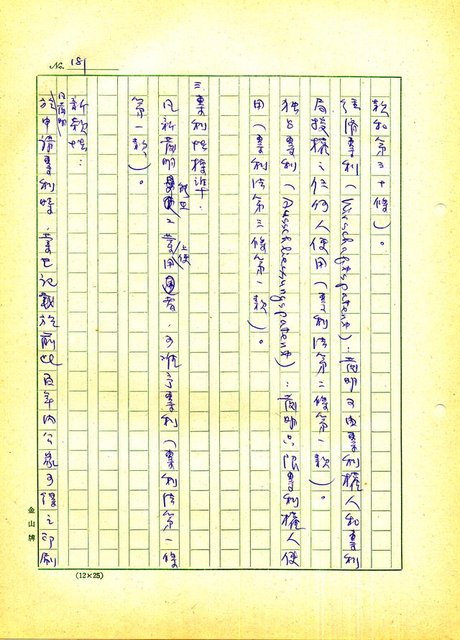 No. 181
款和第三十條)。
經濟專利(Wirschaftspatent):發明可由專利權人和專利
局授權之任何人使用(專利法第二條第一款)。
獨占專利(Ausschliessungspatent):發明只限專利權人使
用(專利法第三條第一款)。
三、專利性標準:
凡新發明能在工業上使用者,可准予專利(專利法第一條
第一款)。
新穎性:
凡發明
於申請專利時,業已記載於前此百年內公眾可得之印刷
金山牌
(12×25)